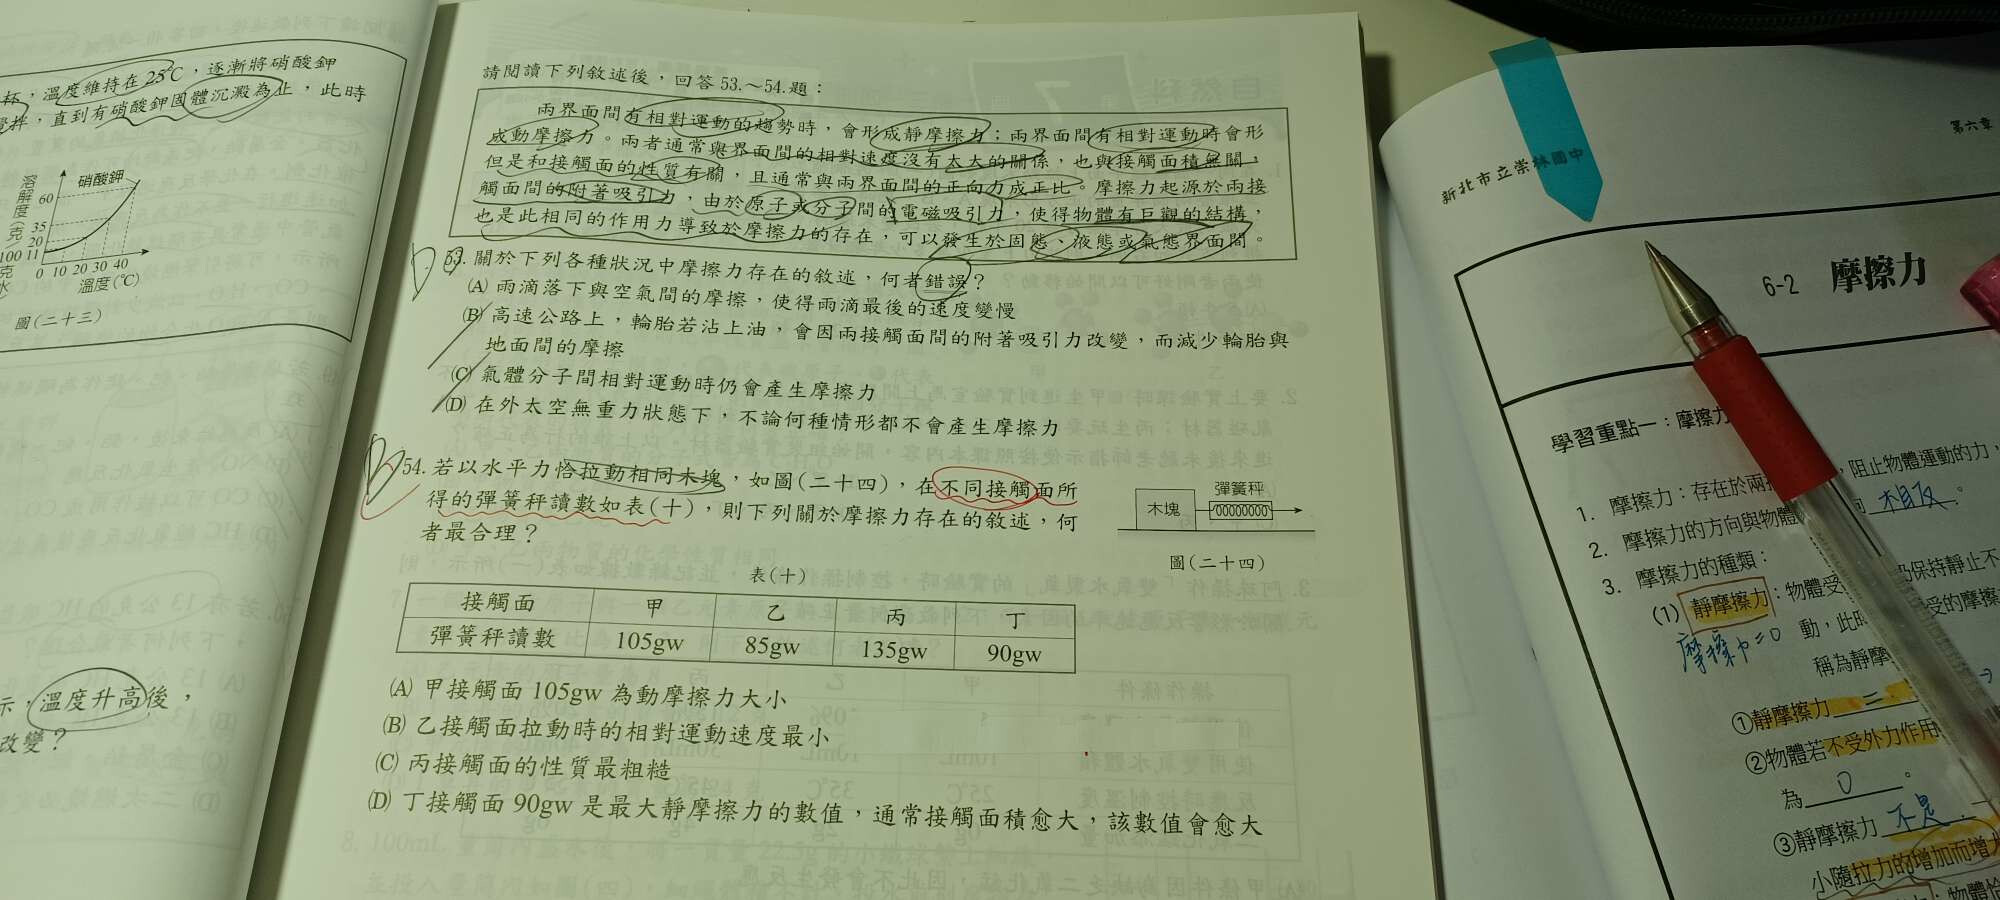 杯，溫度維持在 25℃，逐漸將硝酸鉀
攪拌，直到有硝酸鉀固體沉澱為止，此時
溶解度
克
100
克
水
硝酸鉀
60
35
20
11
0 10 20 30 40
溫度(℃)
圖(二十三)
示，溫度升高後，
改變？
請閱讀下列敘述後，回答53.～54.題：
兩界面間有相對運動的趨勢時，會形成靜摩擦力；兩界面間有相對運動時會形
成動摩擦力。兩者通常與界面間的相對速度沒有太大的關係，也與接觸面積無關，
但是和接觸面的性質有關，且通常與兩界面間的正向力成正比。摩擦力起源於兩接
觸面間的附著吸引力，由於原子或分子間的電磁吸引力，使得物體有巨觀的結構，
也是此相同的作用力導致於摩擦力的存在，可以發生於固態、液態或氣態界面間。
53. 關於下列各種狀況中摩擦力存在的敘述，何者錯誤？
(A) 雨滴落下與空氣間的摩擦，使得雨滴最後的速度變慢
(B) 高速公路上，輪胎若沾上油，會因兩接觸面間的附著吸引力改變，而減少輪胎與
地面間的摩擦
(C) 氣體分子間相對運動時仍會產生摩擦力
(D) 在外太空無重力狀態下，不論何種情形都不會產生摩擦力
54. 若以水平力恰拉動相同木塊，如圖(二十四)，在不同接觸面所
得的彈簧秤讀數如表(十)，則下列關於摩擦力存在的敘述，何
者最合理？
木塊 彈簧秤
圖(二十四)
表(十)
接觸面 甲 乙 丙 丁
彈簧秤讀數 105gw 85gw 135gw 90gw
(A) 甲接觸面 105gw 為動摩擦力大小
(B) 乙接觸面拉動時的相對運動速度最小
(C) 丙接觸面的性質最粗糙
(D) 丁接觸面 90gw 是最大靜摩擦力的數值，通常接觸面積愈大，該數值會愈大
新北市立崇林國中
第六章
6-2 摩擦力
學習重點一：摩擦力
1. 摩擦力：存在於兩接 ，阻止物體運動的力，
2. 摩擦力的方向與物體 向 相反。
3. 摩擦力的種類：
(1) 靜摩擦力：物體受 仍保持靜止不
動，此時 受的摩擦
稱為靜摩
①靜摩擦力 =
②物體若不受外力作用
為 0 。
③靜摩擦力 不是
小隨拉力的增加而增大